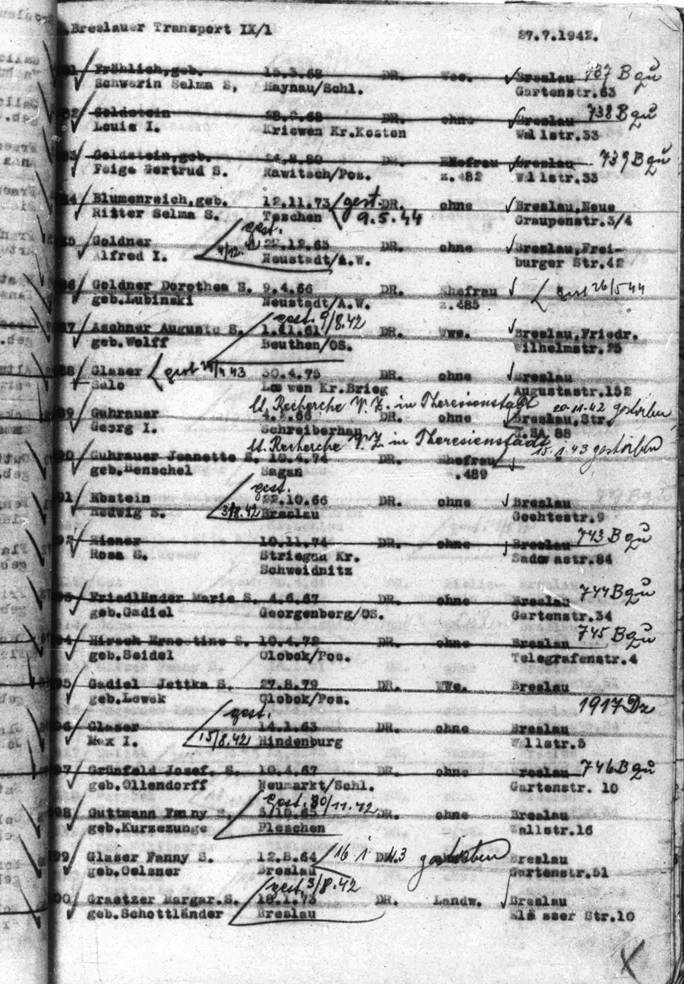 Breslauer Transport IX/1 27.7.1942.
Fröhlich, geb. 15.3.68 DR. Wwe. Breslau 737 B qu
Schwerin Selma S. Haynau/Schl. Gartenstr.63
Goldstein DR. ohne Breslau 738 B qu
Louis I. Kriewen Kr.Kosten Wallstr.33
Goldstein, geb. 24.8.80 DR. Ehefrau Breslau 739 B qu
Feige Gertrud S. Rawitsch/Pos. z.482 Wallstr.33
Blumenreich, geb. 12.11.73 gest. DR. ohne Breslau, Neue
Ritter Selma S. Teschen 9.5.44 Graupenstr.3/4
Goldner gest. 22.12.65 DR. ohne Breslau, Frei-
Alfred I. Neustadt/A.W. burger Str.42
Goldner Dorothea S. 9.4.66 DR. Ehefrau gest 26/5 44
geb.Lubinski Neustadt/A.W. z.485
gest. 9/8.42
Aschner Auguste S. 1.11.61 DR. Wwe. Breslau, Friedr.
geb.Wolff Beuthen/OS. Wilhelmstr.25
Glaser 30.4.75 DR. ohne Breslau
Salo Loewen Kr.Brieg Augustastr.152
lt. Recherche V. Z. in Theresienstadt 20.11.42 gestorben
Guhrauer DR. ohne Breslau, Str.
Georg I. Schreiberhau d.SA 68
lt. Recherche V. Z in Theresienstadt 15.1.43 gestorben
Guhrauer Jeanette S. DR. Ehefrau
geb.Henschel Sagan .489
gest.
Ebstein 22.10.66 DR. ohne Breslau
Hedwig S. 3/8.42 Breslau Goethestr.9
Eisner 10.11.74 DR. ohne Breslau 743 B qu
Rosa S. Striegau Kr. Sadowastr.84
Schweidnitz
Friedländer Marie S. 4.6.67 DR. ohne Breslau 744 B qu
geb.Gadiel Georgenberg/OS. Gartenstr.34
Hirsch Ernestine S. 10.4.78 DR. ohne Breslau 745 B qu
geb.Seidel Olobok/Pos. Telegrafenstr.4
Gadiel Jettka S. 27.8.79 DR. Wwe. Breslau
geb.Lewek Olobok/Pos. 1917 Dz
gest.
Glaser 14.1.63 DR. ohne Breslau
Max I. 15/8.42 Hindenburg Wallstr.5
Grünfeld Josef. S. 10.4.67 DR. ohne Breslau 746 B qu
geb.Ollendorff Neumarkt/Schl. Gartenstr. 10
gest. 30/11.42
Guttmann Fanny S. DR. ohne Breslau
geb.Kurzezunge Pleschen Wallstr.16
Glaser Fanny S. 12.8.64 16.1.43 gestorben Breslau
geb.Oelsner Breslau Gartenstr.51
gest. 3/8.42
Graetzer Margar.S. 18.1.73 DR. Landw. Breslau
geb.Schottländer Breslau Elsasser Str.10